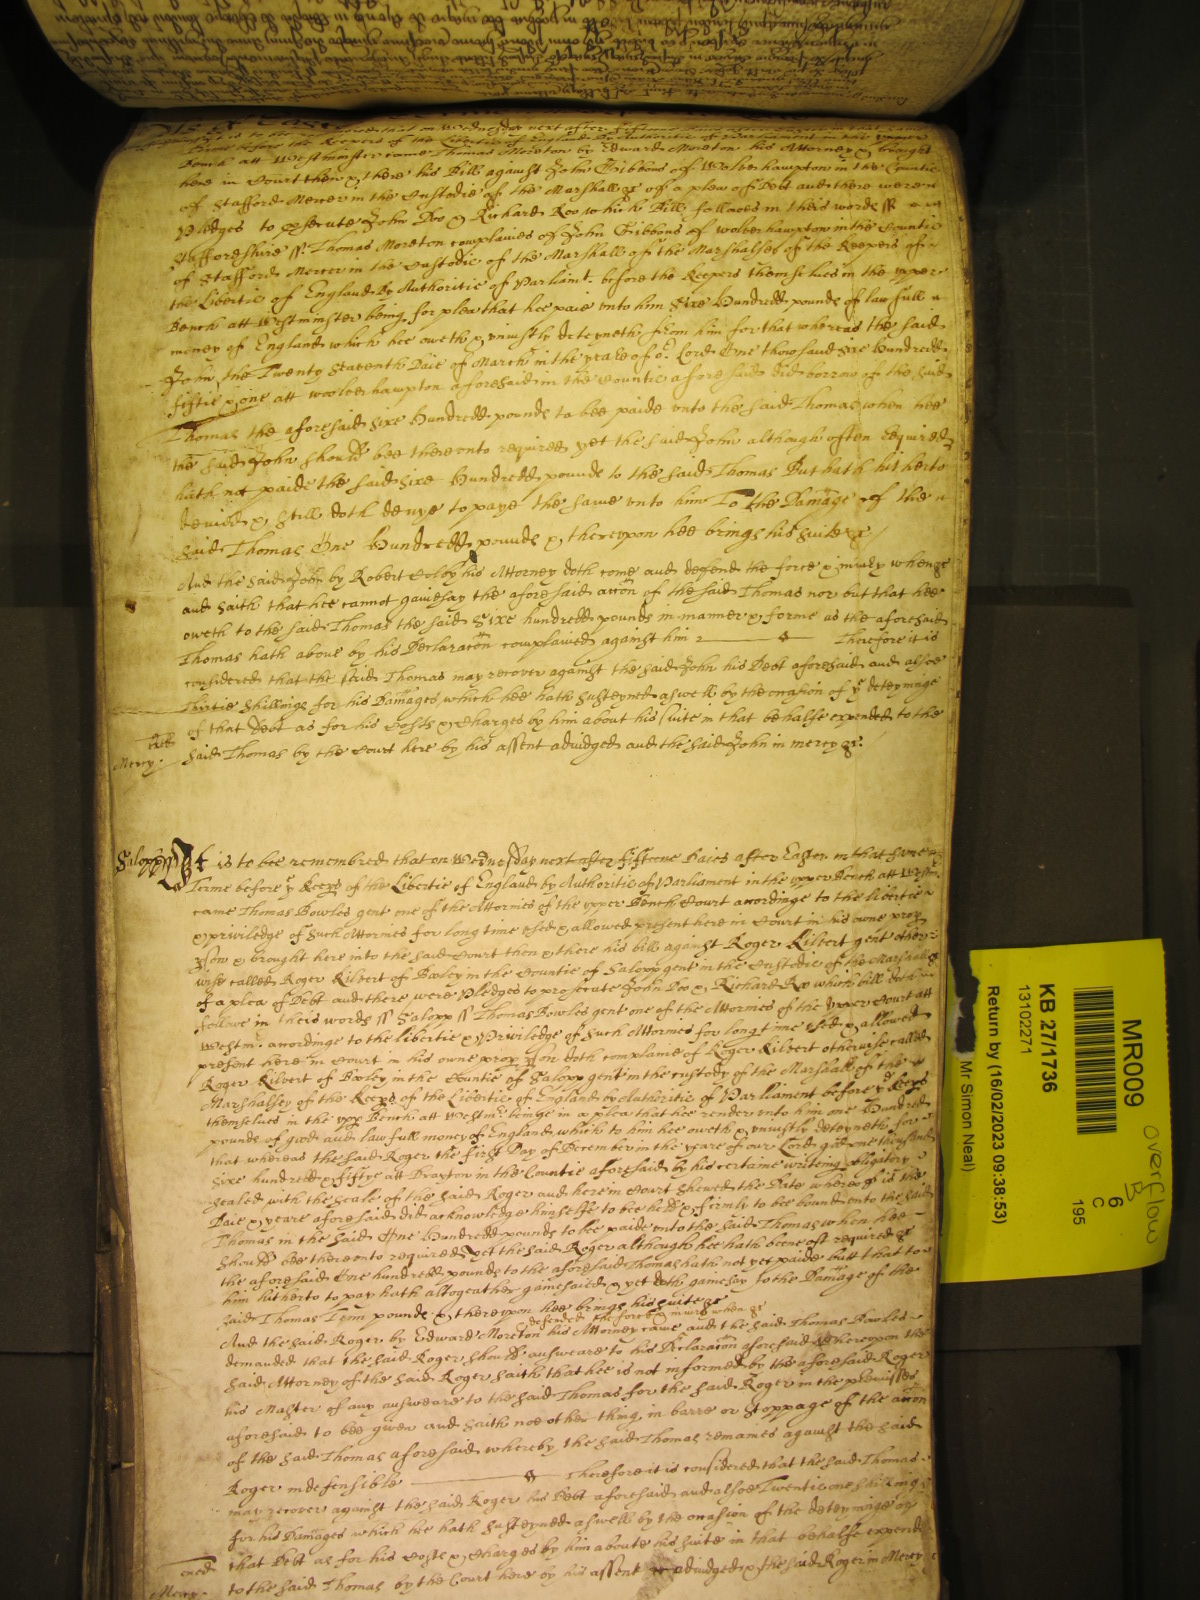 bee remembred that on Wednesday next after fifteene
Terme before the Keepers of the Libertie of England by Authoritie of Parliament in the upper
Bench att Westminster came Thomas Moreton by Edward Moreton his Attorney & brought
here in Court then & there his Bill against John Gibbons of Wolverhampton in the Countie
of Stafford Mercer in the Custodie of the Marshall &c of a plea of Debt and there were
Pledges to prosecute John Doo & Richard Roo which Bill followes in theis words ss
Staffordshire ss. Thomas Moreton complaines of John Gibbons of Wolverhampton in the Countie
of Stafford Mercer in the Custodie of the Marshall of the Marshalsey of the Keepers of
the Libertie of England By Authoritie of Parliamt. before the Keepers themselves in the upper
Bench att Westminster being. for plea that hee paie unto him Sixe Hundredd pounds of lawfull
money of England which hee oweth & uniustly deteyneth from him for that whereas the said
John the Twenty Seaventh Daie of March in the yeare of or Lord One thowsand sixe Hundredd
fiftie & one att Woolverhampton aforesaid in the Countie aforesaid did borrow of the said
Thomas the aforesaid Sixe Hundredd pounds to bee paide unto the said Thomas when hee
the said John should bee thereonto required yet the said John although often Required
hath not paide the said sixe Hundredd pounds to the said Thomas But hath hitherto
denied & still doth denye to paye the same unto him To the Damage of the
said Thomas One Hundredd pounds & thereupon hee brings his suite &c
And the said John by Robert Colby his Attorney doth come and defend the force & iniury when &c
and saith that hee cannot gainesay the aforesaid accon of the said Thomas nor but that hee
oweth to the said Thomas the said Sixe hundredd pounds in manner & forme as the aforesaid
Thomas hath above by his Declaracon complained against him Therefore it is
considered that the said Thomas may recover against the said John his Debt aforesaid and alsoe
Thirtie Shillings for his Damages which hee hath susteyned aswell by the occasion of ye deteyninge
of that Debt as for his Costs & Charges by him about his suite in that behalfe expended to the
Mercy. said Thomas by the Court here by his assent adiudged and the said John in mercy &c.
Salopp ss It is to bee remembred that on Wednesday next after fifteene Daies after Easter in that same
Terme before ye Keeps of the Libertie of England by Authoritie of Parliament in the upper Bench att Westmr.
came Thomas Bowles gent one of the Attornies of the upper Bench Court accordinge to the libertie
& priviledge of such Attornies for long time used & allowed present here in Court in his owne prop
pson & brought here into the said Court then & there his bill against Roger Kilvert gent other-
wise called Roger Kilvert of in the Countie of Salopp gent in the Custodie of the Marshall &c
of a plea of Debt and there were Pledges to prosecute John Doo & Richard Roo which bill doth
followe in theis words ss Salopp ss Thomas Bowles gent one of the Attornies of the upper Court att
Westmr. accordinge to the libertie & Priviledge of such Attornies for long time used & allowed
present here in Court in his owne prop pson doth complaine of Roger Kilvert otherwise called
Roger Kilvert of in the Countie of Salopp gent in the custody of the Marshall of the
Marshalsey of the Keeps of the Libertie of England by Authoritie of Parliament before ye Keeps
themselves in the upp Bench att Westmr. beinge in a plea that hee render unto him one Hundredd
pounds of good and lawfull money of England which to him hee oweth & uniustly deteyneth for
that whereas the said Roger the first Day of December in the yeare of our Lord god one thousand
sixe hundredd & fiftye att Drayton in the Countie aforesaid by his certaine writeing obligatory
sealed with the seale of the said Roger and here in Court shewed the Date whereof is the
Daie & yeare aforesaid did acknowledge himselfe to bee held & firmly to bee bound unto the said
Thomas in the said One Hundredd pounds to bee paide unto the said Thomas when hee
should bee thereonto required yet the said Roger although hee hath beene oft required &c
the aforesaid One hundredd pounds to the aforesaid Thomas hath not yet paide butt that to
him hitherto to pay hath altogeather gainesaied & yet doth gainesay to the Damage of the
said Thomas Tenn pounds & thereupon hee brings his suite &c
defended the force & iniury when &c
And the said Roger by Edward Moreton his Attorney came and the said Thomas Bowles
demanded that the said Roger should answeare to his Declaracon aforesaid Whereupon the
said Attorney of the said Roger saith that hee is not informed by the aforesaid Roger
his Master of any answeare to the said Thomas for the said Roger in the premisses
aforesaid to bee given and saith noe other thing in barre or stoppage of the accon
of the said Thomas aforesaid whereby the said Thomas remaines against the said
Roger indefensible Therefore it is considered that the said Thomas
may recover against the said Roger his Debt aforesaid and alsoe Twentie one shillings
for his Damages which hee hath susteyned aswell by the occasion of the deteyninge of
that Debt as for his Costs & Charges by him aboute his suite in that behalfe expend
Mercy. to the said Thomas by the Court here by his assent adiudged & the said Roger in Mercy
MR009
6
C
195
Overflow
B
KB 27/1736
13102271
Return by (16/02/2023 09:38:53)
Mr Simon Neal)